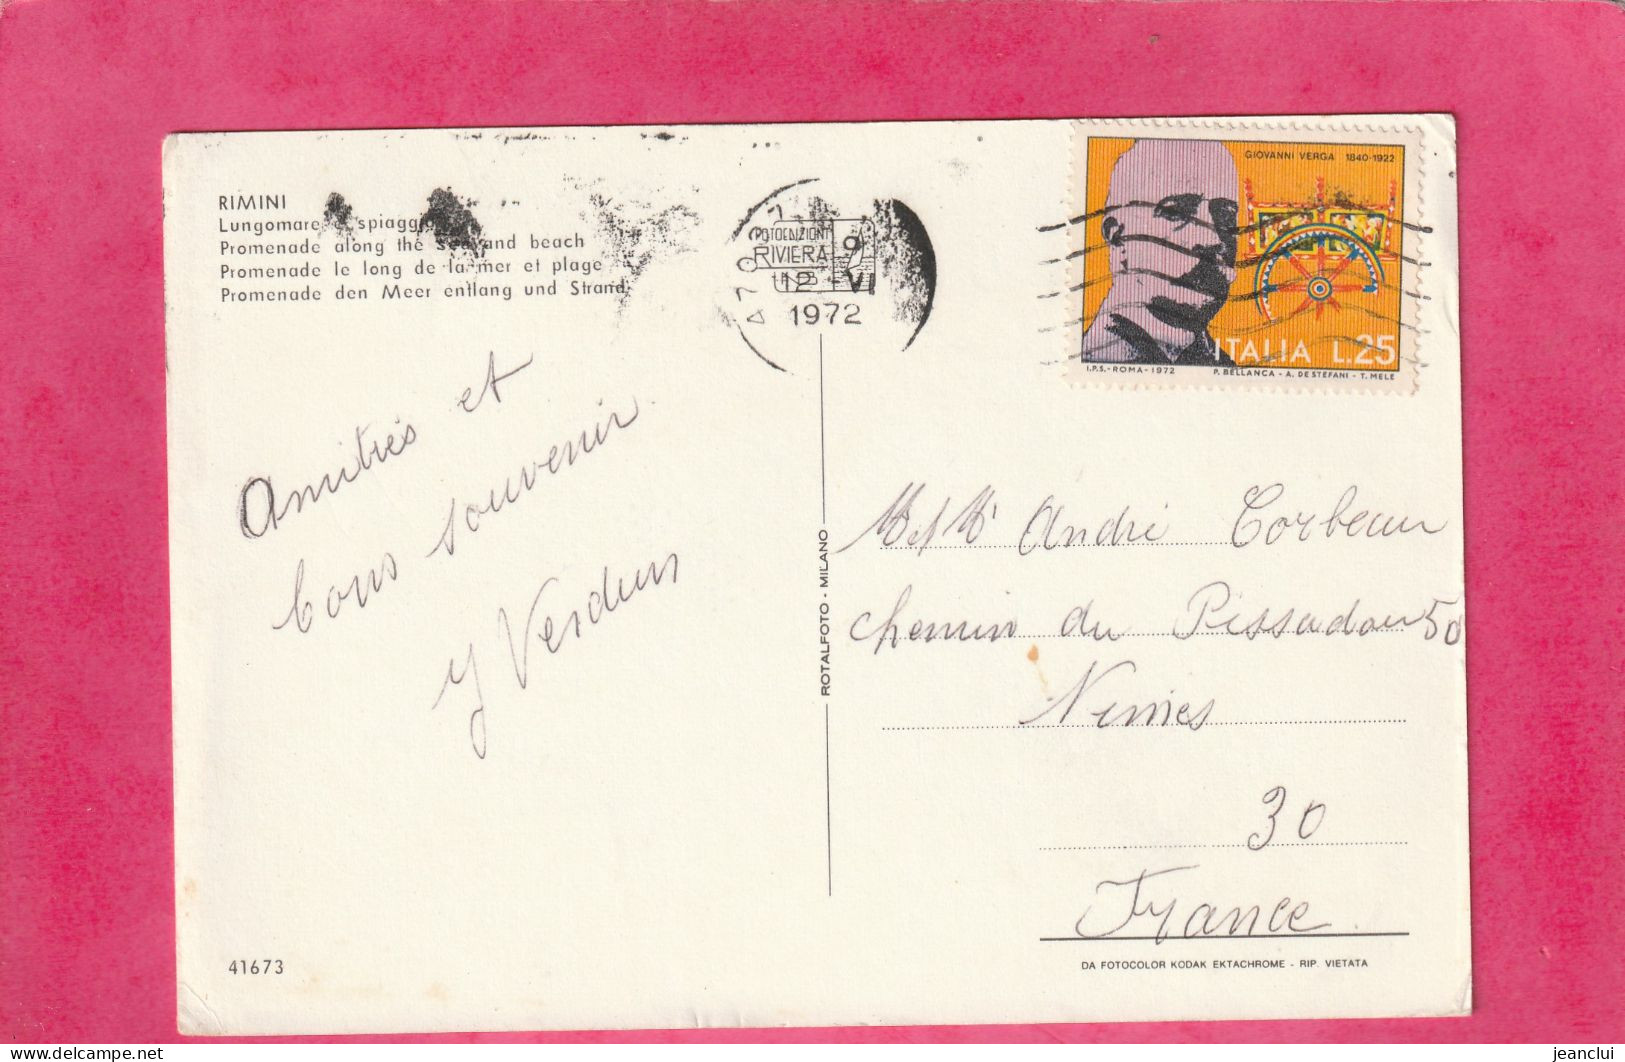 RIMINI
Lungomare e spiaggia
Promenade along the sea and beach
Promenade le long de la mer et plage
Promenade den Meer entlang und Strand
FOTOEDIZIONI
RIVIERA
9
12 VI
1972
GIOVANNI VERGA 1840-1922
ITALIA L.25
I.P.S.-ROMA-1972 P. BELLANCA - A. DE STEFANI - T. MELE
Amitiés et
bons souvenir
Y Verdun
ROTALFOTO - MILANO
M et Me André Corbeau
Chemin du Pissadou 50
Nimes
30
France
41673
DA FOTOCOLOR KODAK EKTACHROME - RIP. VIETATA
delcampe.net
jeanclui